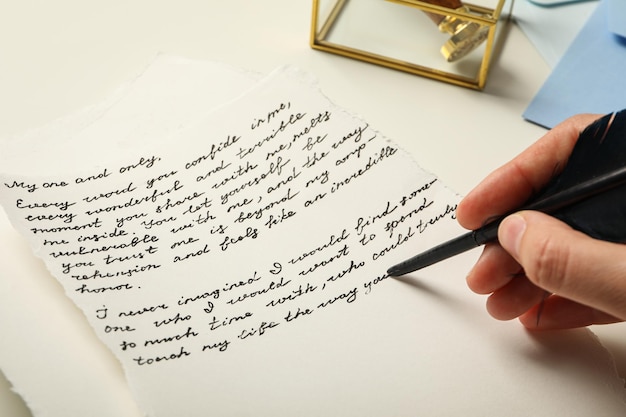 My one and only.
Every word you confide in me,
every wonderful and terrible
moment you share with me, melts
me inside. You let yourself be
vulnerable with me, and the way
you trust me is beyond my comp-
rehension and feels like an incredible
honor.
I never imagined I would find some
one who I would want to spend
so much time with, who could truly
touch my life the way you